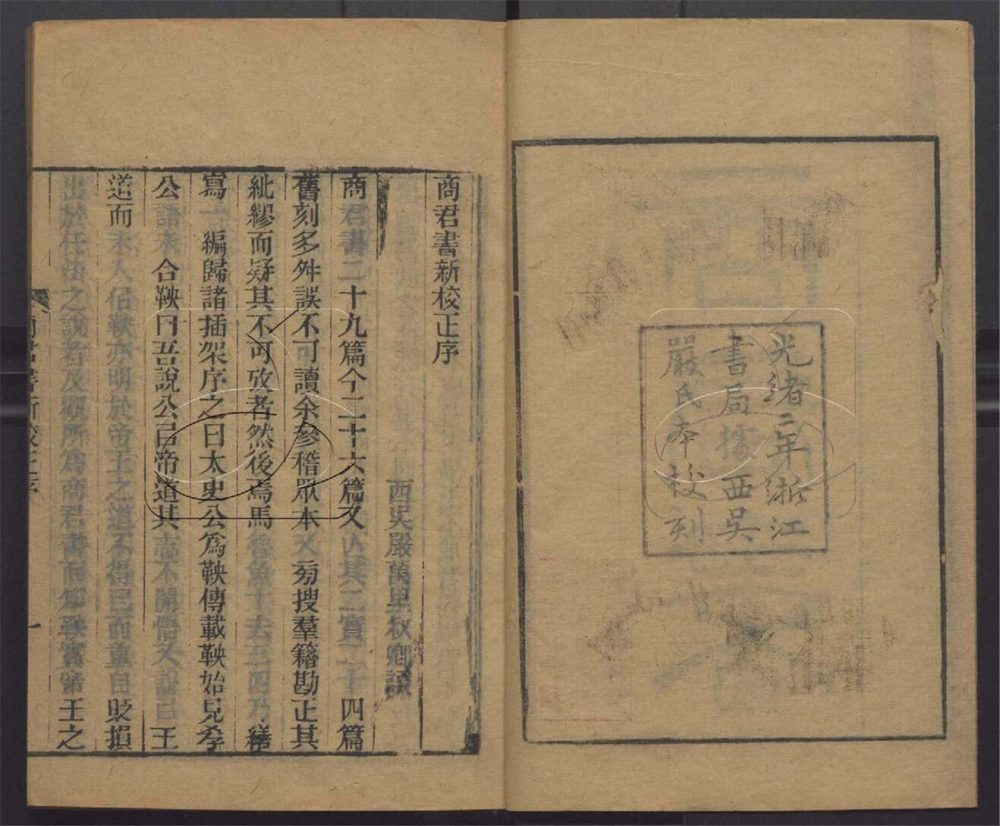 光緒二年浙江
書局據西吳
嚴氏本校刻
商君書新校正序
西吳嚴萬里叔卿譔
商君書二十九篇今二十六篇又亾其二實二十四篇
舊刻多舛誤不可讀余參稽眾本又旁搜羣籍勘正其
紕繆而疑其不可攷者然後焉馬魯魚十去三四乃繕
寫一編歸諸插架序之曰太史公爲鞅傳載鞅始見孝
公語未合鞅曰吾說公㠯帝道其志不開悟又說㠯王
道而未入㑹鞅亦明於帝王之道不得已而重自貶損
出於任法之說者及觀所爲商君書而知鞅實帝王之
商君書新校正序
一